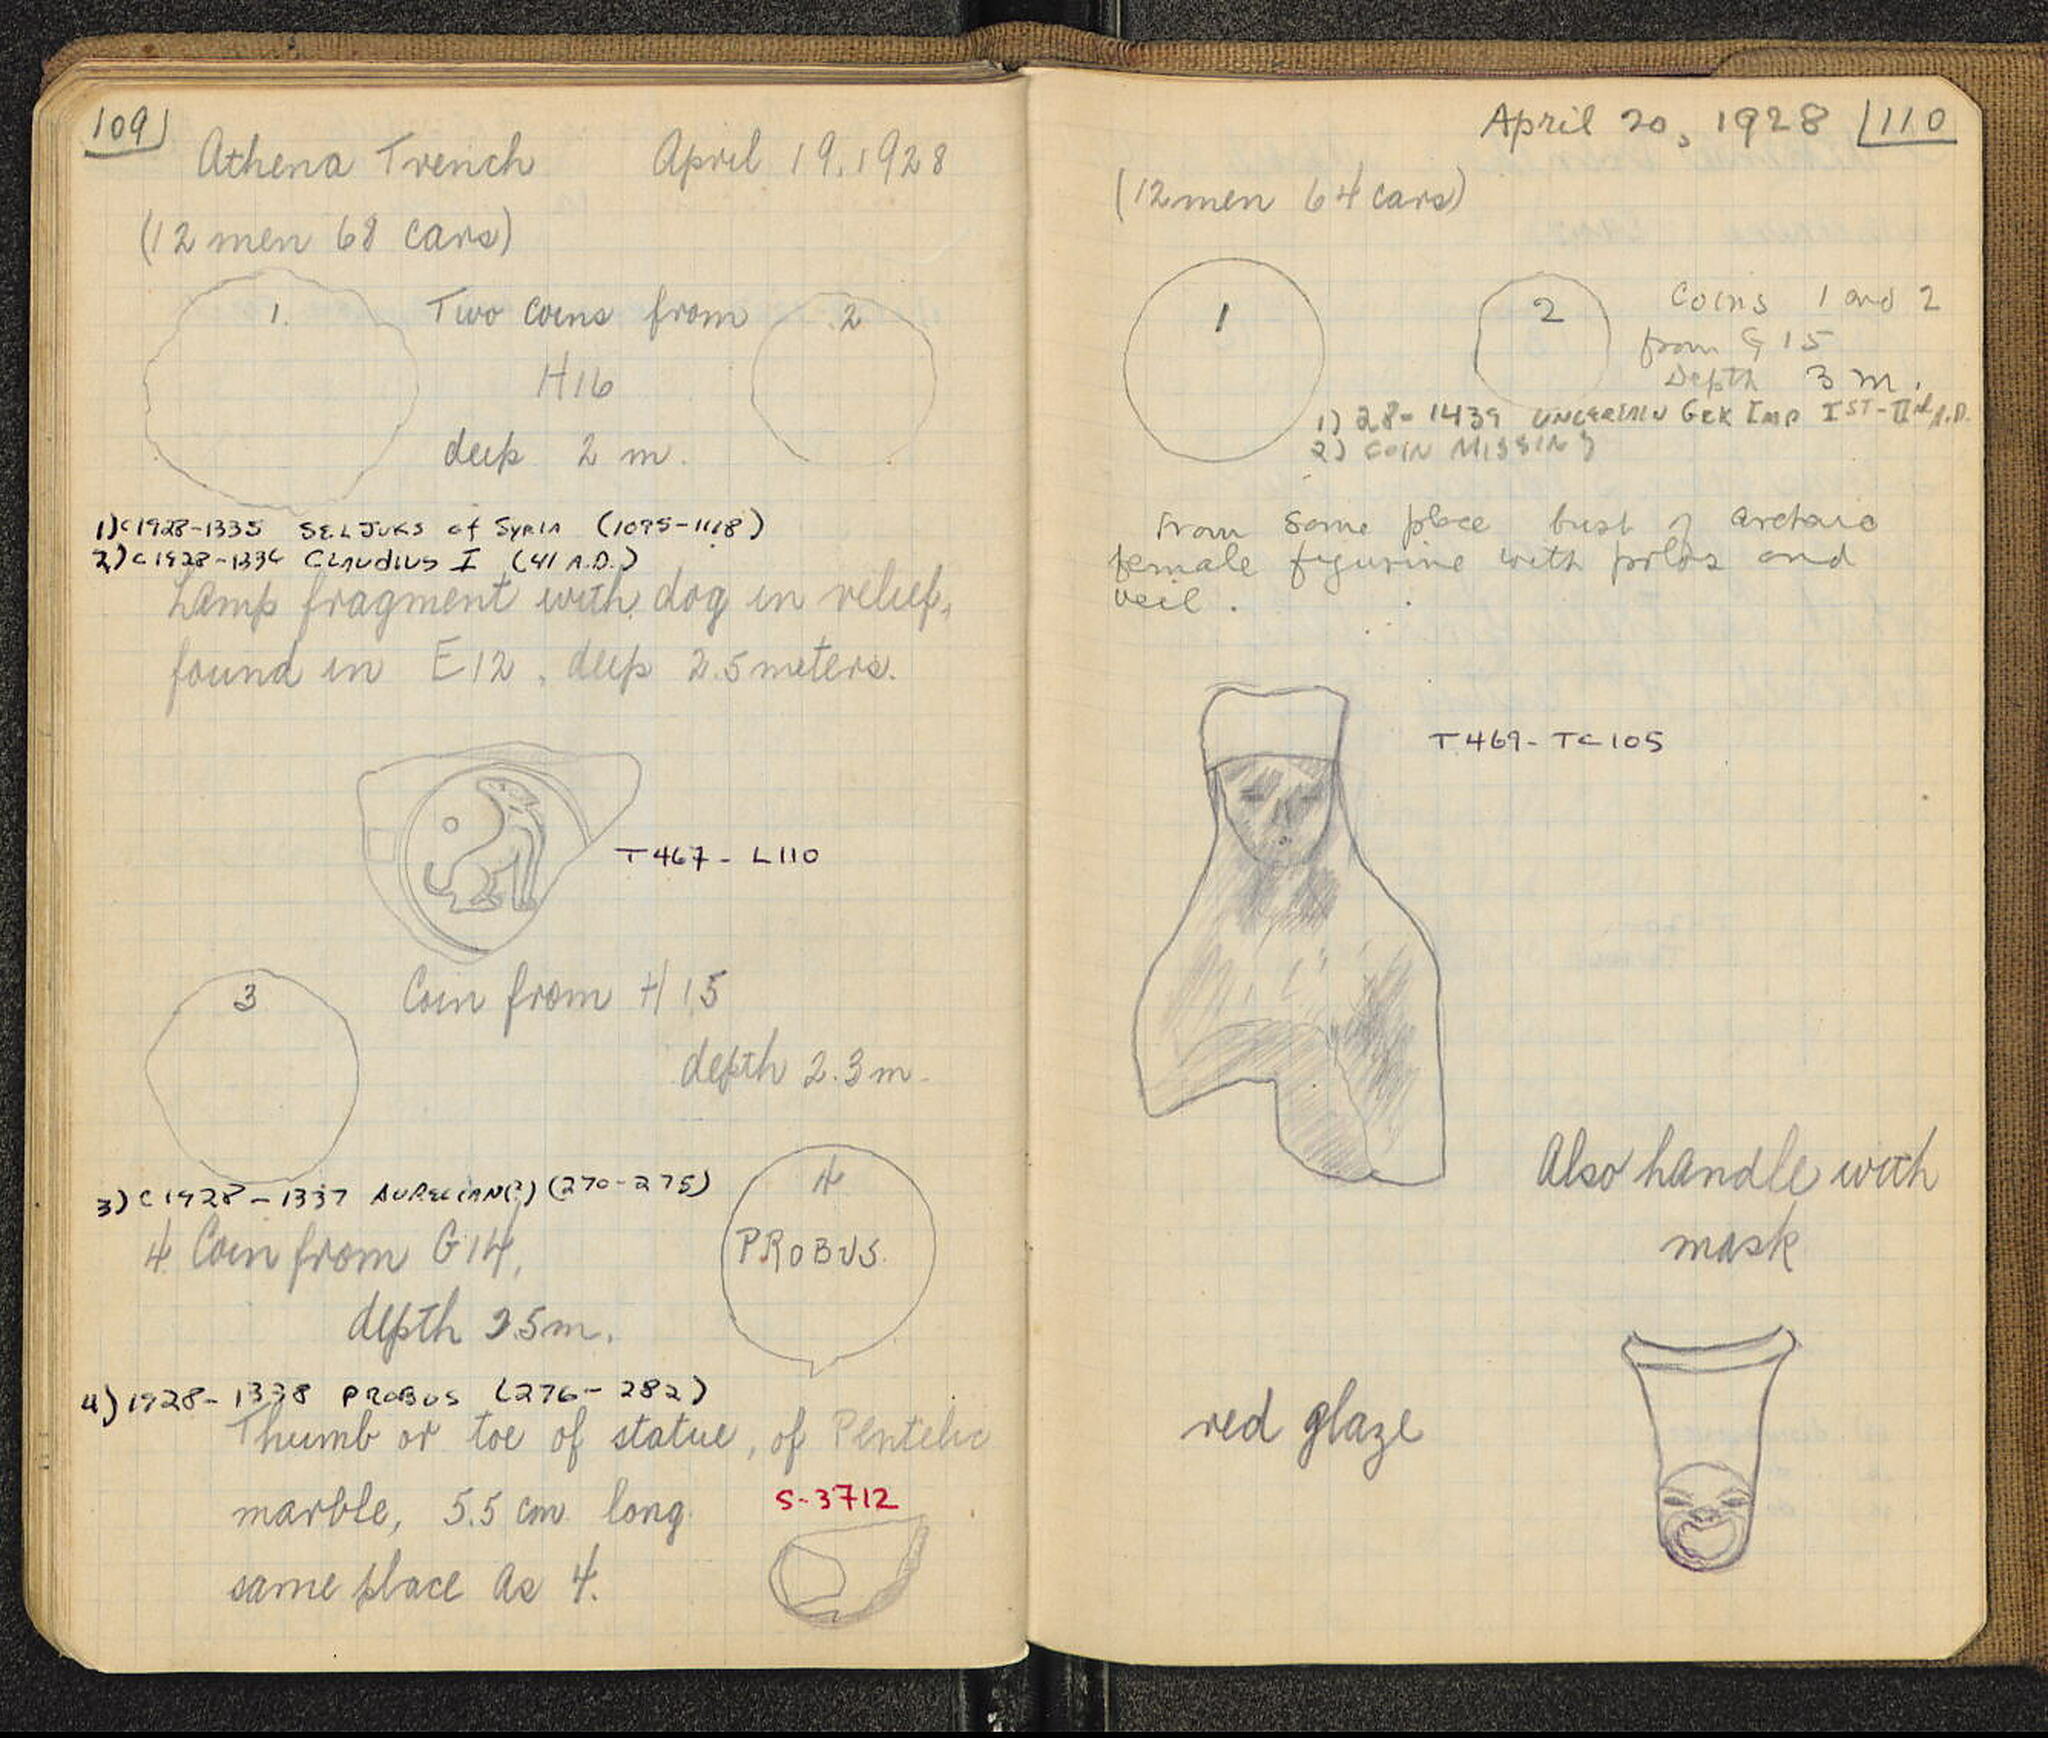 109
Athena Trench April 19, 1928
(12 men 68 cars)
1. Two coins from 2
H16
deep 2 m.
1) C1928-1335 SELJUKS of SYRIA (1095-1118)
2) C1928-1336 CLAUDIUS I (41 A.D.)
Lamp fragment with dog in relief,
found in E12, deep 2.5 meters.
T 467 - L110
3 Coin from H 15
depth 2.3 m.
3) C1928-1337 AURELIAN(?) (270-275)
4
PROBUS.
4 Coin from G14,
depth 2.5 m.
4) 1928-1338 PROBUS (276-282)
Thumb or toe of statue, of Pentelic
marble, 5.5 cm long.
S-3712
same place as 4.
April 20, 1928 110
(12 men 64 cars)
1 2 Coins 1 and 2
from G 15
Depth 3 m.
1) 28-1439 UNCERTAIN GRK IMP IST-IInd A.D.
2) COIN MISSING
From same place bust of archaic
female figurine with polos and
veil.
T 469 - TC 105
Also handle with
mask
red glaze